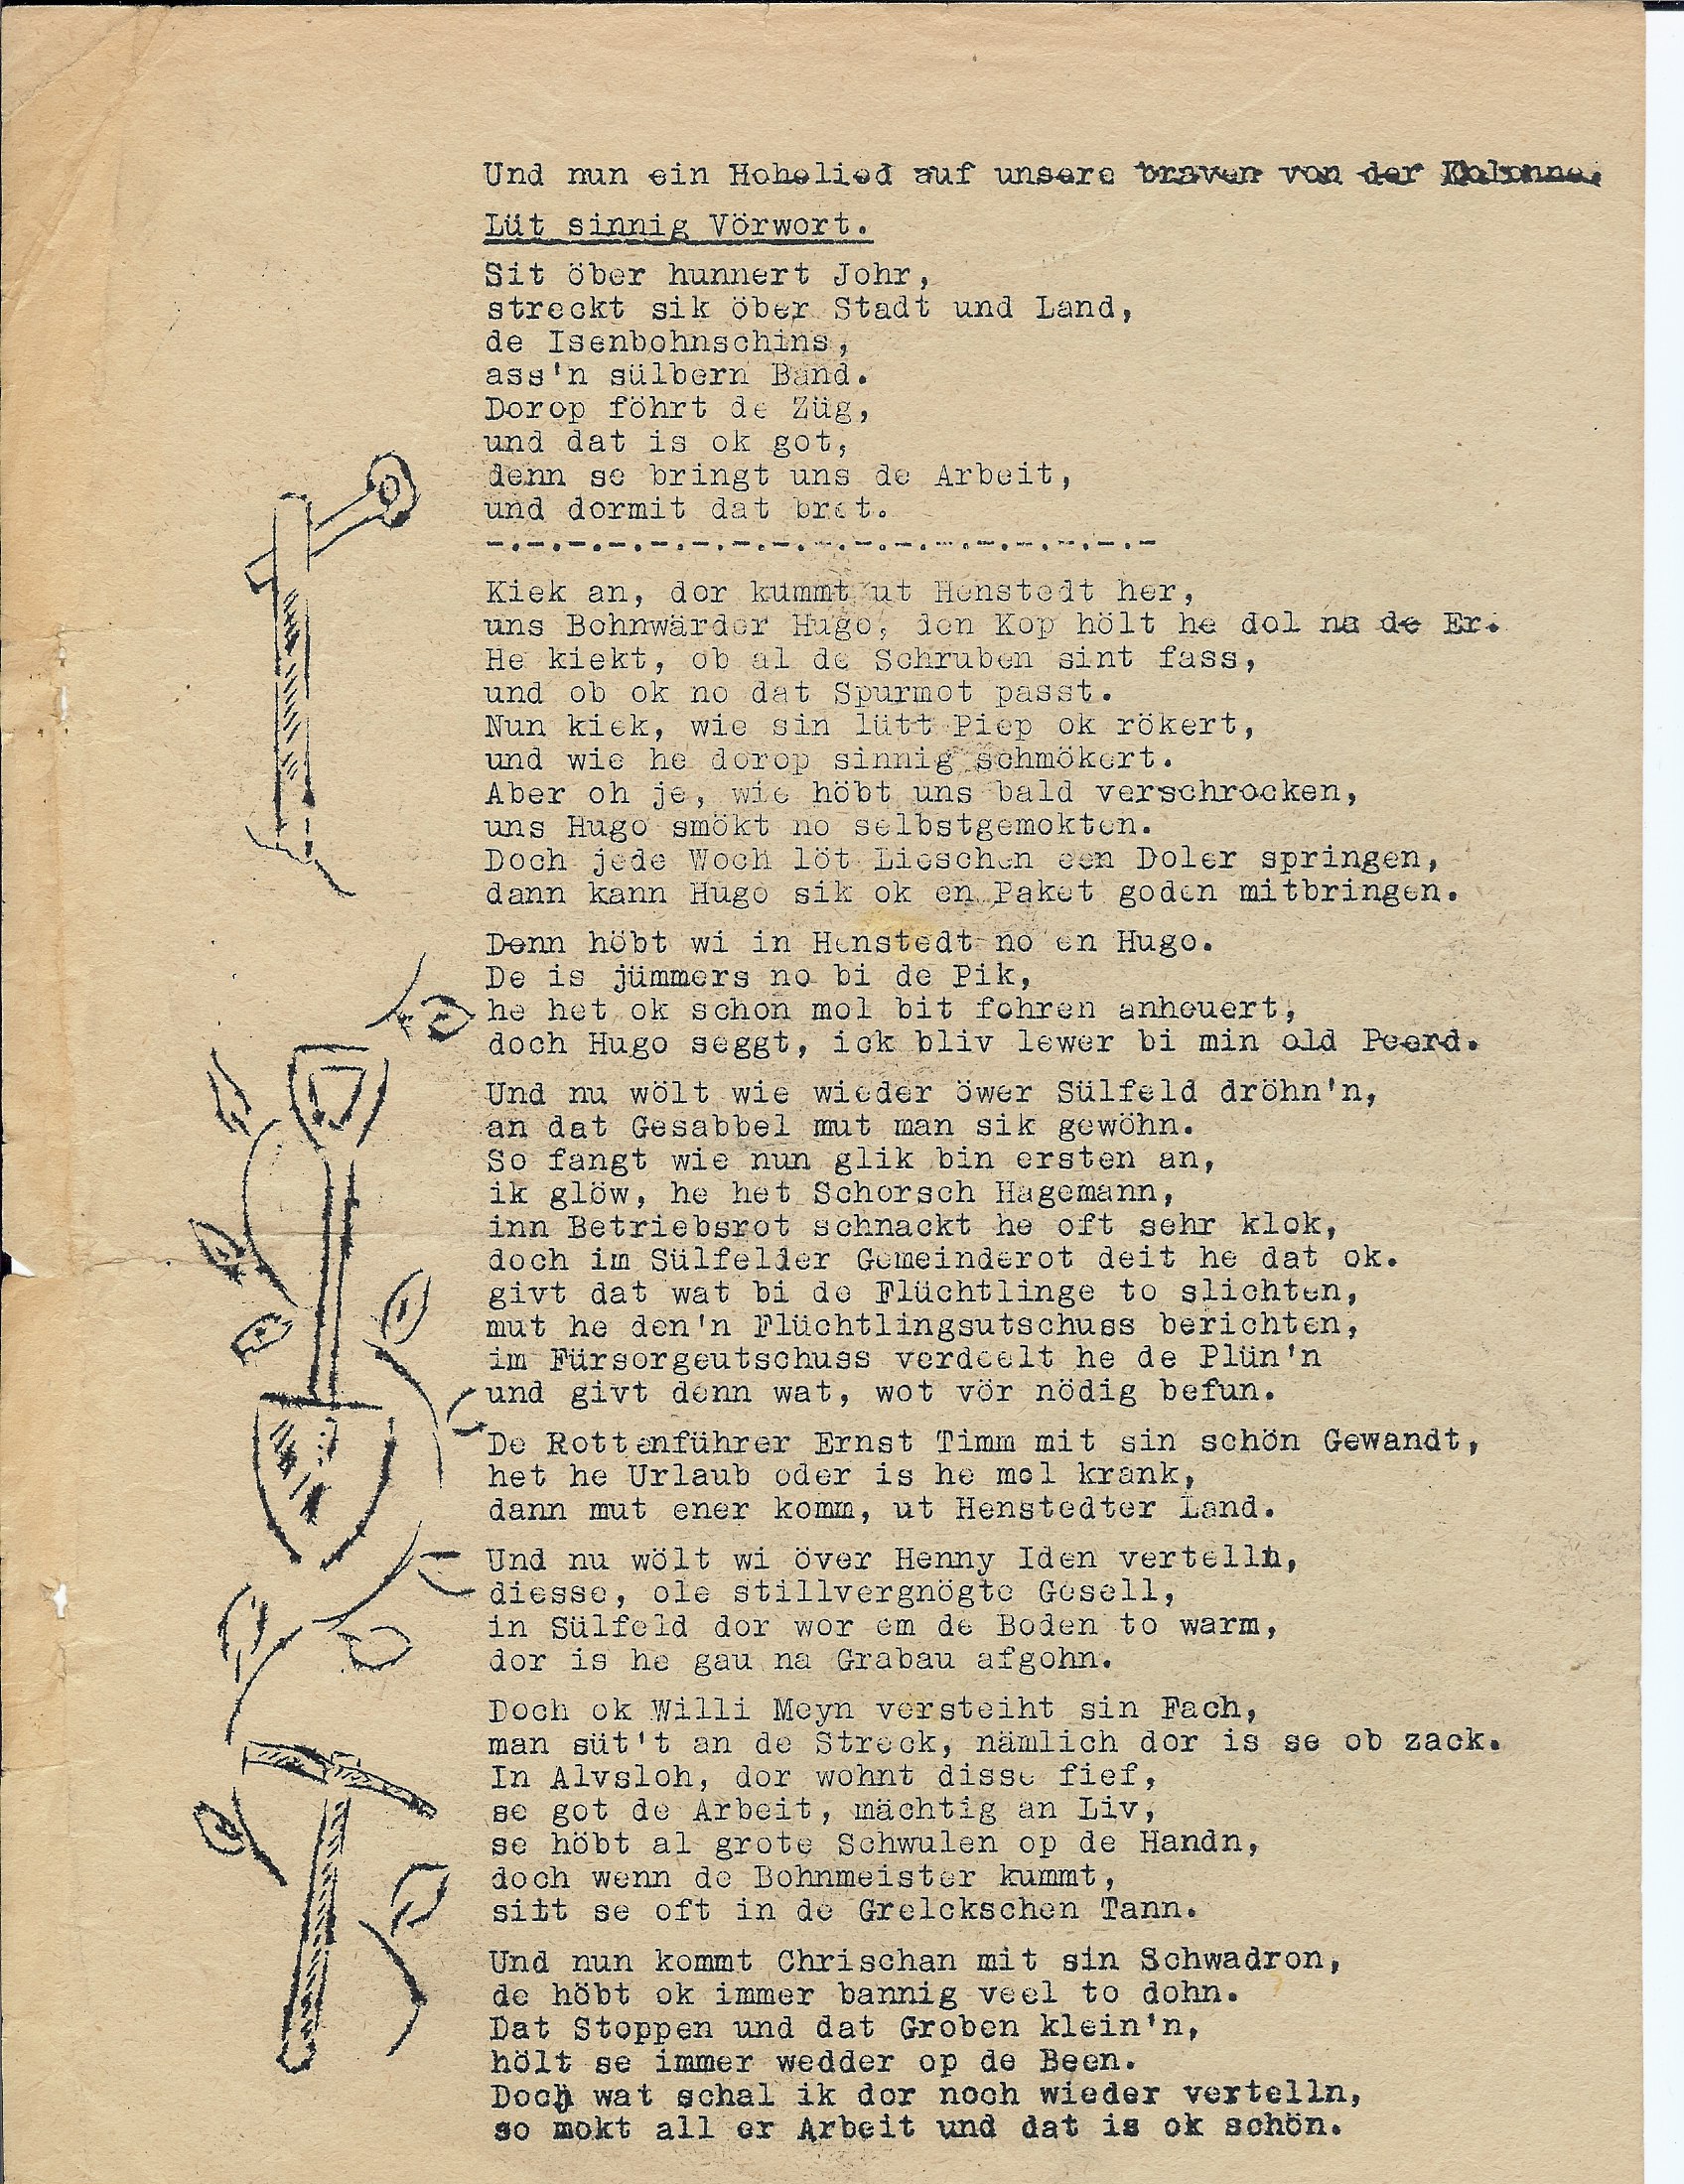 Und nun ein Hohelied auf unsere braven von der Kolonne.
Lüt sinnig Vörwort.
Sit öber hunnert Johr,
streckt sik öber Stadt und Land,
de Isenbohnschins,
ass'n sülbern Band.
Dorop föhrt de Züg,
und dat is ok got,
denn se bringt uns de Arbeit,
und dormit dat brot.
-.-.-.-.-.-.-.-.-.-.-.-.-.-.-.-.-
Kiek an, dor kummt ut Henstedt her,
uns Bohnwärder Hugo, den Kop hölt he dol na de Er.
He kiekt, ob al de Schruben sint fass,
und ob ok no dat Spurmot passt.
Nun kiek, wie sin lütt Piep ok rökert,
und wie he dorop sinnig schmökert.
Aber oh je, wie höbt uns bald verschrocken,
uns Hugo smökt no selbstgemokten.
Doch jede Woch löt Lieschen een Doler springen,
dann kann Hugo sik ok en Paket goden mitbringen.
Denn höbt wi in Henstedt no en Hugo.
De is jümmers no bi de Pik,
he het ok schon mol bit fohren anheuert,
doch Hugo seggt, ick bliv lewer bi min old Peerd.
Und nu wölt wie wieder öwer Sülfeld dröhn'n,
an dat Gesabbel mut man sik gewöhn.
So fangt wie nun glik bin ersten an,
ik glöw, he het Schorsch Hagemann,
inn Betriebsrot schnackt he oft sehr klok,
doch im Sülfelder Gemeinderot deit he dat ok.
givt dat wat bi de Flüchtlinge to slichten,
mut he den'n Flüchtlingsutschuss berichten,
im Fürsorgeutschuss verdeelt he de Plün'n
und givt denn wat, wot vör nödig befun.
De Rottenführer Ernst Timm mit sin schön Gewandt,
het he Urlaub oder is he mol krank,
dann mut ener komm, ut Henstedter Land.
Und nu wölt wi över Henny Iden vertelln,
diesse, ole stillvergnögte Gesell,
in Sülfeld dor wor em de Boden to warm,
dor is he gau na Grabau afgohn.
Doch ok Willi Meyn versteiht sin Fach,
man süt't an de Streck, nämlich dor is se ob zack.
In Alvsloh, dor wohnt disse fief,
se got de Arbeit, mächtig an Liv,
se höbt al grote Schwulen op de Handn,
doch wenn de Bohnmeister kummt,
sitt se oft in de Grelckschen Tann.
Und nun kommt Chrischan mit sin Schwadron,
de höbt ok immer bannig veel to dohn.
Dat Stoppen und dat Groben klein'n,
hölt se immer wedder op de Been.
Doch wat schal ik dor noch wieder vertelln,
so mokt all er Arbeit und dat is ok schön.